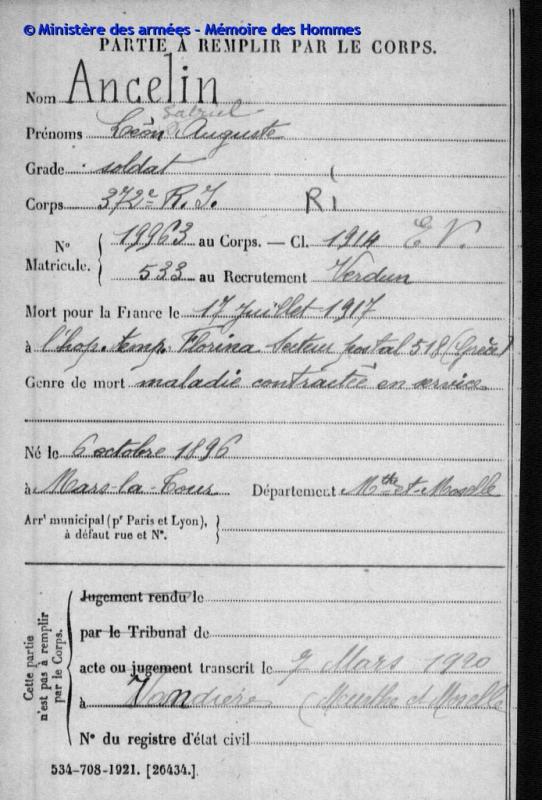 © Ministère des armées - Mémoire des Hommes
PARTIE À REMPLIR PAR LE CORPS.
Nom Ancelin
Gabriel
Prénoms Léon Auguste
Grade soldat
Corps 372e R.I. R1
N° Matricule. { 19963 au Corps. — Cl. 1914 E V.
533 au Recrutement Verdun
Mort pour la France le 17 Juillet 1917
à l'hop. temp. Florina Secteur postal 518 (Grèce)
Genre de mort maladie contractée en service
Né le 6 octobre 1896
à Mars-la-Tour Département Mthe et-Moselle
Arrt municipal (pr Paris et Lyon), }
à défaut rue et N°.
Cette partie n'est pas à remplir par le Corps.
Jugement rendu le
par le Tribunal de
acte ou jugement transcrit le 7 Mars 1920
à Vandières (Meurthe et Moselle
N° du registre d'état civil
534-708-1921. [26434.]